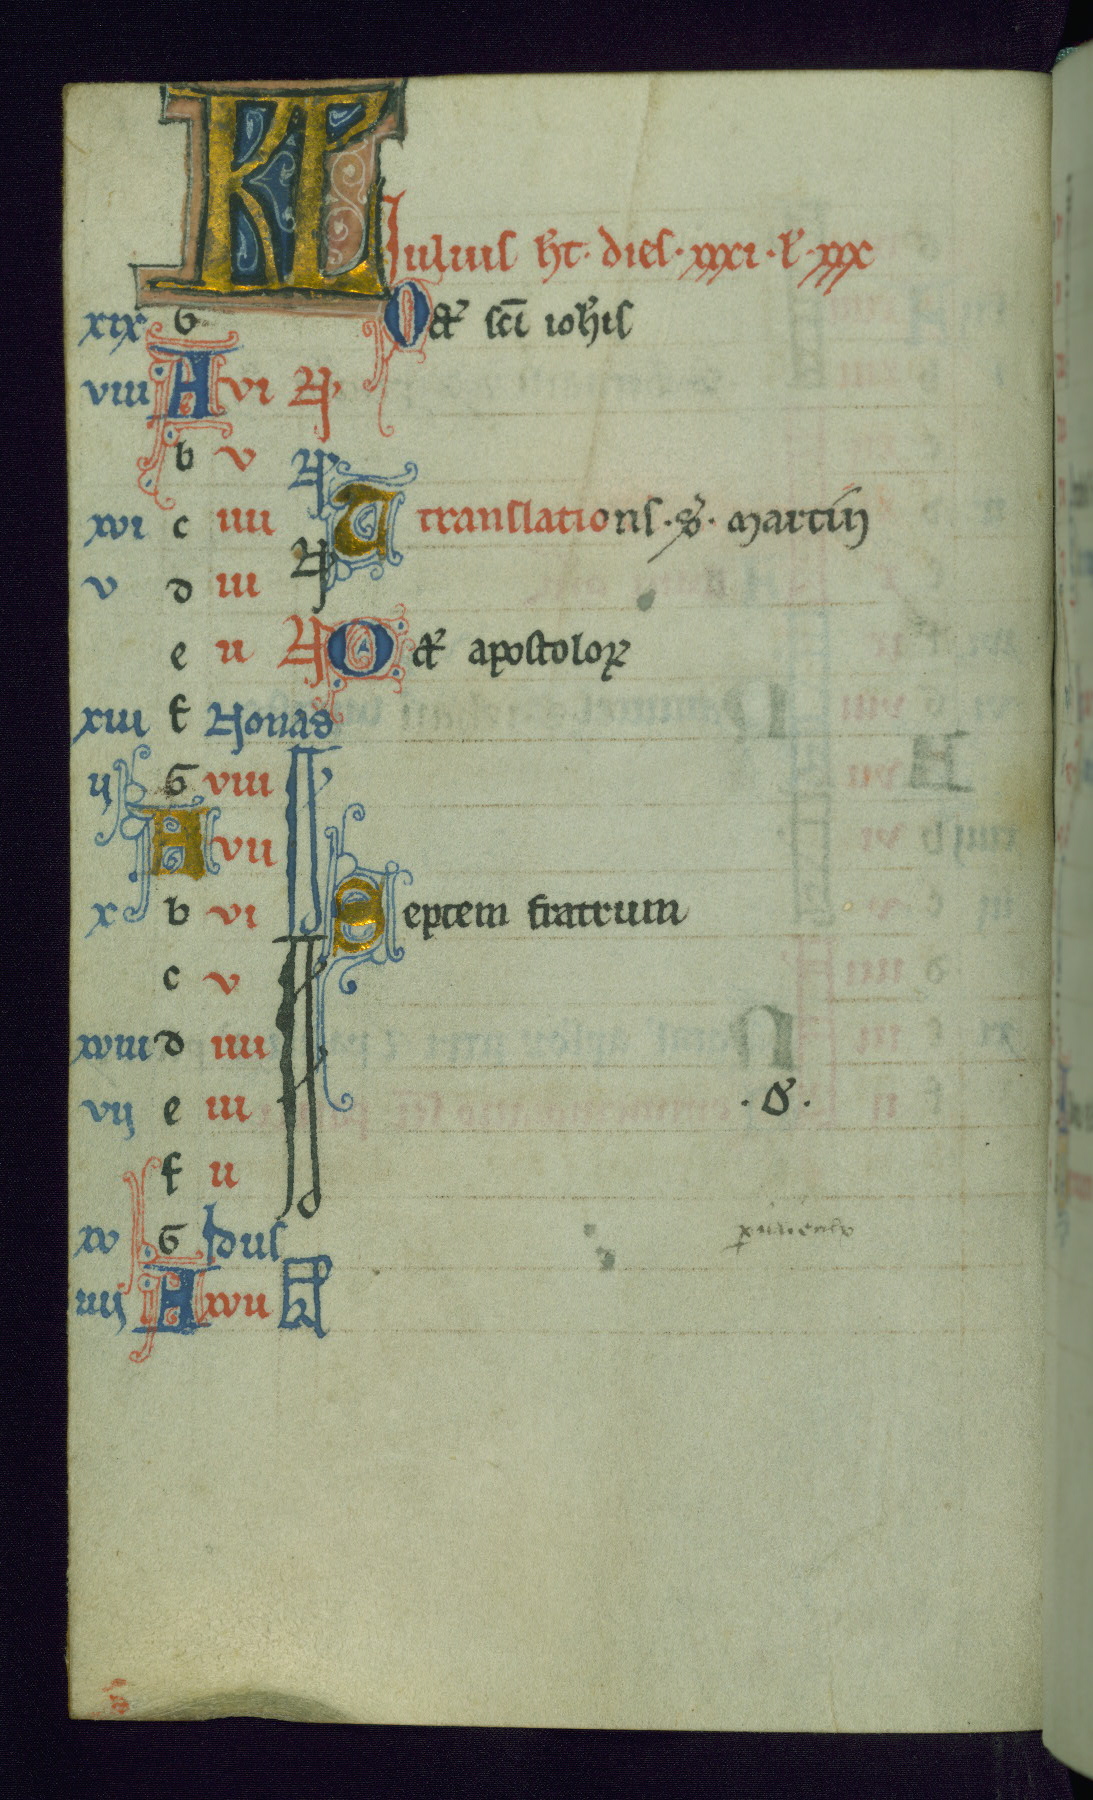 KL
Iulius h̄t · dies · xxxi · l̄ · xxx
xix G Oct̄ sc̄i ioh̄is
viii A vi N̄
b v N̄
xvi c iiii N̄ T translations · s̄ · martin
v d iii N̄
e ii N̄ Oct̄ apostoloꝝ
xiii f Nonas
ij G viii Id
A vii
x b vi Septem fratrum
c v Id
xviii d iiii
vij e iii · D ·
f ii
xv G Idus
iiij A xvii kł